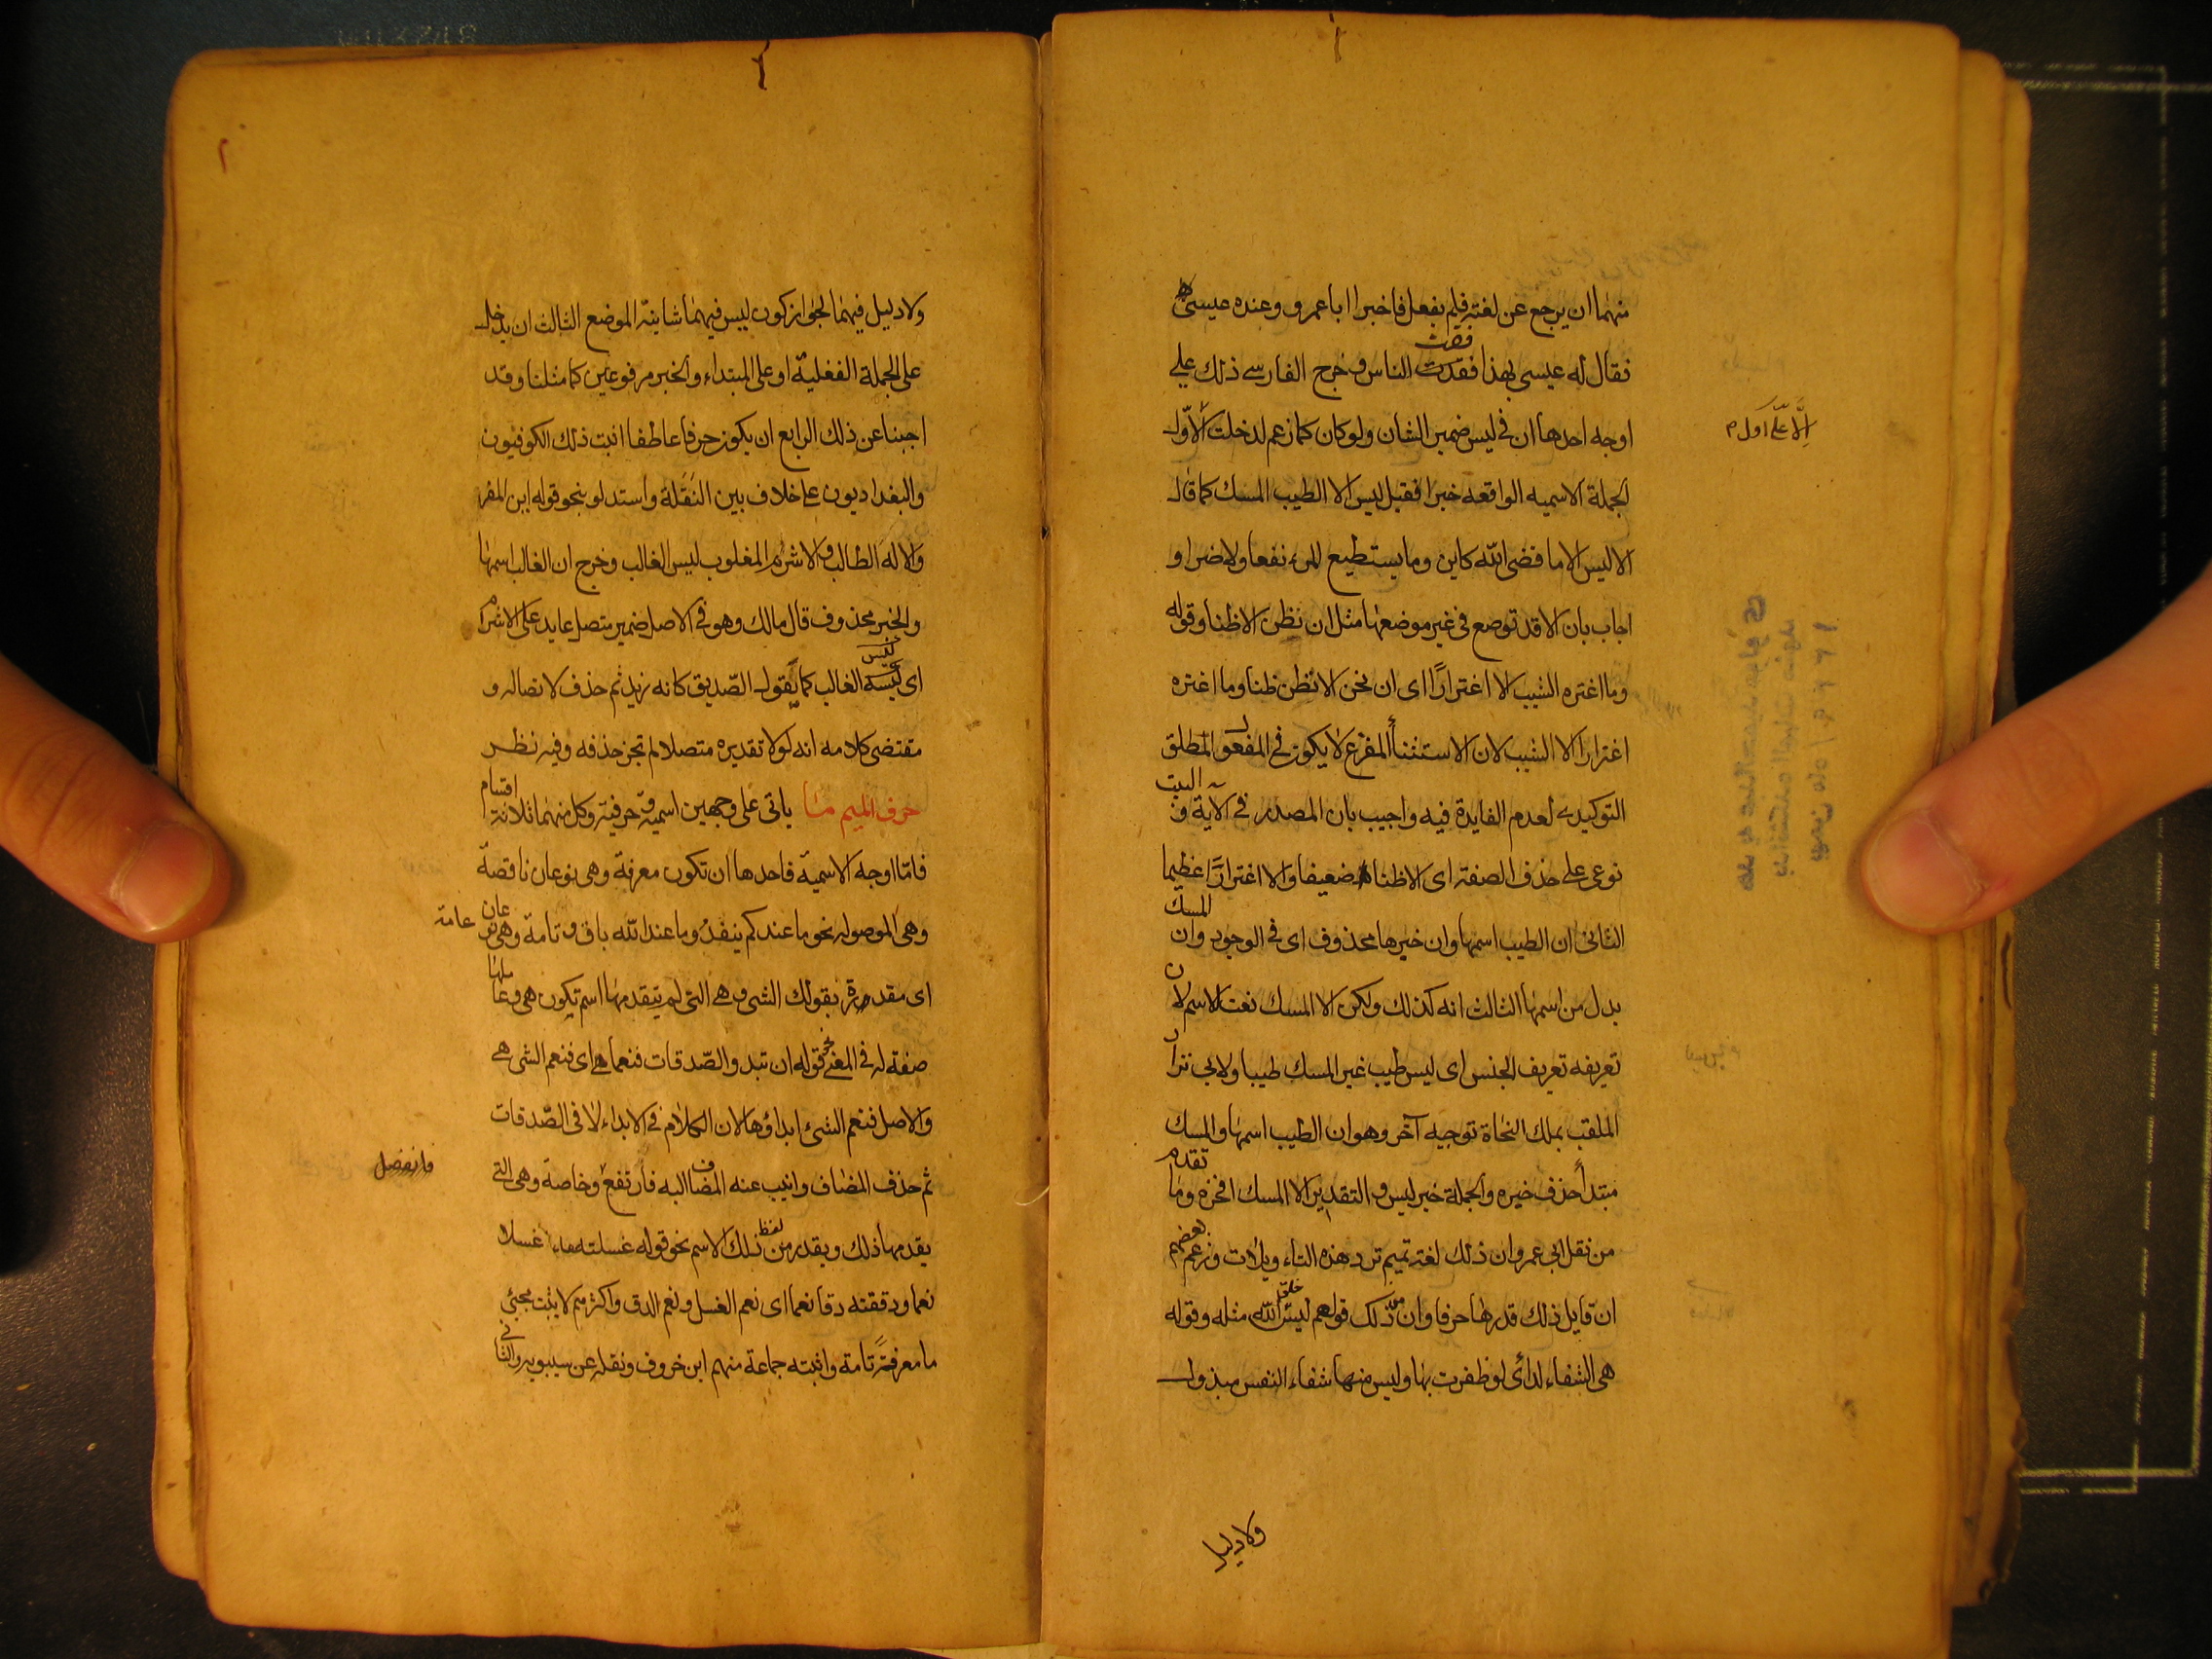 منهما ان يرجع عن لغته فلم يفعل فاخبرا ابا عمرو وعنده عيسى
فقال له عيسى بهذا فقت الناس وخرج الفارسى ذلك على
اوجه احدها ان فى ليس ضمير الشان ولو كان كما زعم لدخلت الا على اول
الجملة الاسميه الواقعه خبرا فقيل ليس الا الطيب المسك كما قال
الا ليس الا ما قضى الله كاين وما يستطيع المرء نفعا ولا ضرا و
اجاب بان الا قد توضع فى غير موضعها مثل ان نظن الا ظنا وقوله
وما اغتره الشيب الا اغترارًا اى ان نحن الا نظن ظنا وما اغتره
اغترارا الا الشيب لان الاستثنأ المفرغ لا يكون فى المفعول المطلق
التوكيدى لعدم الفايدة فيه واجيب بان المصدر فى الاية والبيت
نوعى على حذف الصفة اى الا ظنا ضعيفا والا اغترارًا عظيما
الثانى ان الطيب اسمها وان خبرها محذوف اى فى الوجود وان المسك
بدل من اسمها الثالث انه كذلك ولكن الا المسك نعت للاسم لان
تعريفه تعريف الجنس اى ليس طيب غير المسك طيبا ولابى نزار
الملقب بملك النحاة توجيه آخر وهو ان الطيب اسمها والمسك
مبتدأ حذف خبره والجملة خبر ليس والتقدير الا المسك افخره وما تقدم
من نقل ابى عمرو ان ذلك لغة تميم ترد هذه التاء ويلات وزعم بعضهم
ان قايل ذلك قدرها حرفا وان من ذلك قولهم ليس خلق الله مثله وقوله
هى الشفاء لدائى لو ظفرت بها وليس منها شفاء النفس مبذول
ولا دليل
ولا دليل فيهما لجواز كون ليس فيهما شانية الموضع الثالث ان يدخل
على الجملة الفعلية او على المبتداء والخبر مرفوعين كما مثلنا وقد
اجبنا عن ذلك الرابع ان يكون حرفا عاطفا اثبت ذلك الكوفيون
والبغداديون على خلاف بين النقلة واستدلو بنحو قوله اين المفر
والاله الطالب والاشرم المغلوب ليس الغالب وخرج ان الغالب اسمها
والخبر محذوف قال مالك وهو فى الاصل ضمير متصل عايد على الاشرم
اى ليسه الغالب كما تقول الصّديق كانه زيد ثم حذف لاتصاله و
مقتضى كلامه انه لولا تقديره متصلا لم تجز حذفه وفيه نظر
حرف الميم ما ياتى على وجهين اسمية وحرفية وكل منهما ثلاثة اقسام
فامّا اوجه الاسميّة فاحدها ان تكون معرفة وهى نوعان ناقصة
وهى الموصوله نحو ما عندكم ينفد وما عند الله باق وتامة وهى نوعان عامة
اى مقدرة بقولك الشى وهى التى لم يتقدمها اسم تكون هى وعاملها
صفة له فى المعنى نحو قوله ان تبدوا الصّدقات فنعما هى اى فنعم الشى هى
والاصل فنعم الشئ ابداؤها لان الكلام فى الابداء لا فى الصّدقات
ثم حذف المضاف وانيب عنه المضاف اليه فارتفع وخاصة وهى التى
يقدمها ذلك ويقدر من لفظ ذلك الاسم نحو قوله غسلته غسلا
نعما ودققته دقا نعما اى نعم الغسل ونعم الدق واكثرهم لا يثبت مجئ
ما معرفةً تامة واثبته جماعة منهم ابن خروف ونقله عن سيبويه والثانى